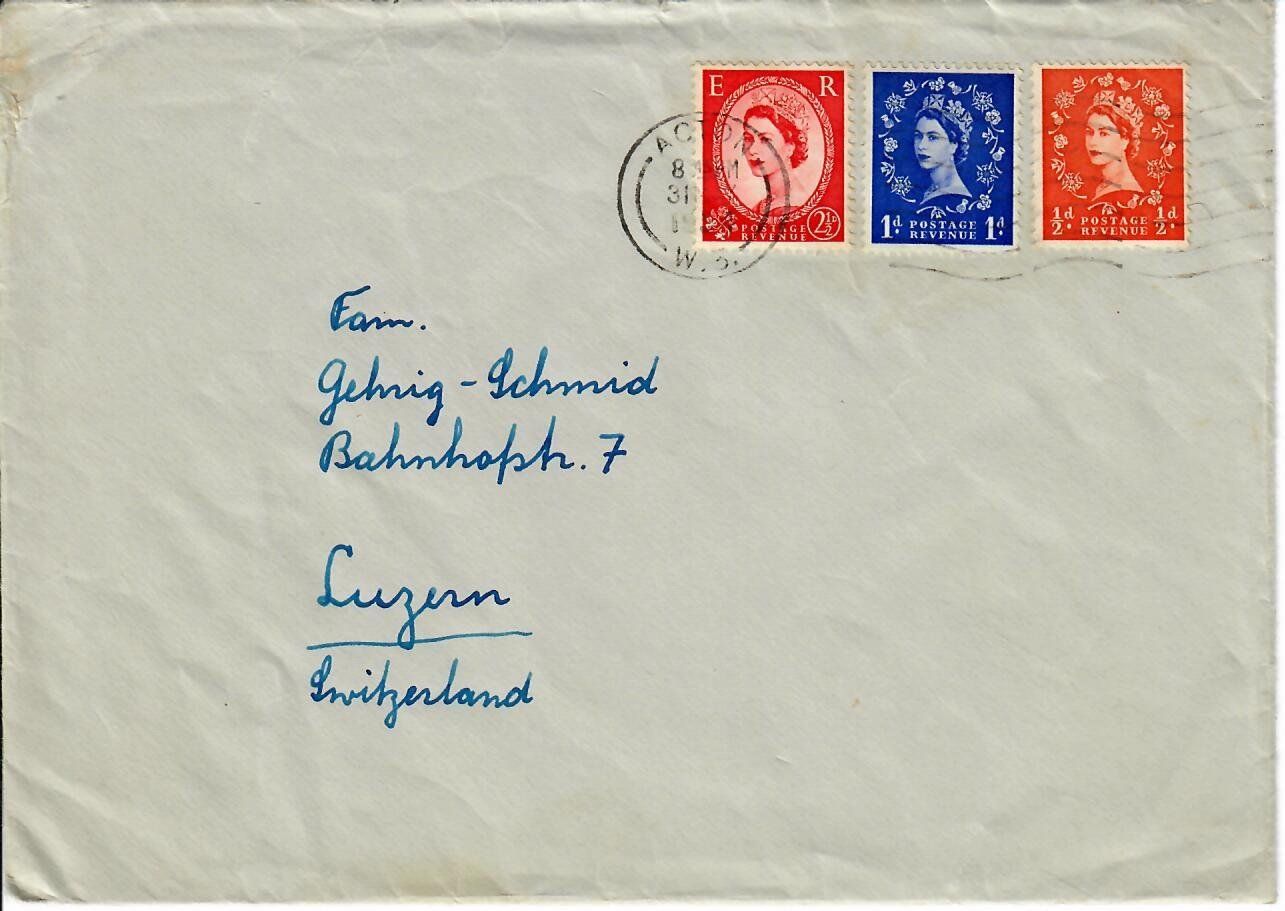 E R
2½D
POSTAGE
REVENUE
1d. POSTAGE 1d.
REVENUE
½d. POSTAGE ½d.
REVENUE
ACTON
31
W.3.
Fam.
Gehrig-Schmid
Bahnhofstr. 7
Luzern
Switzerland